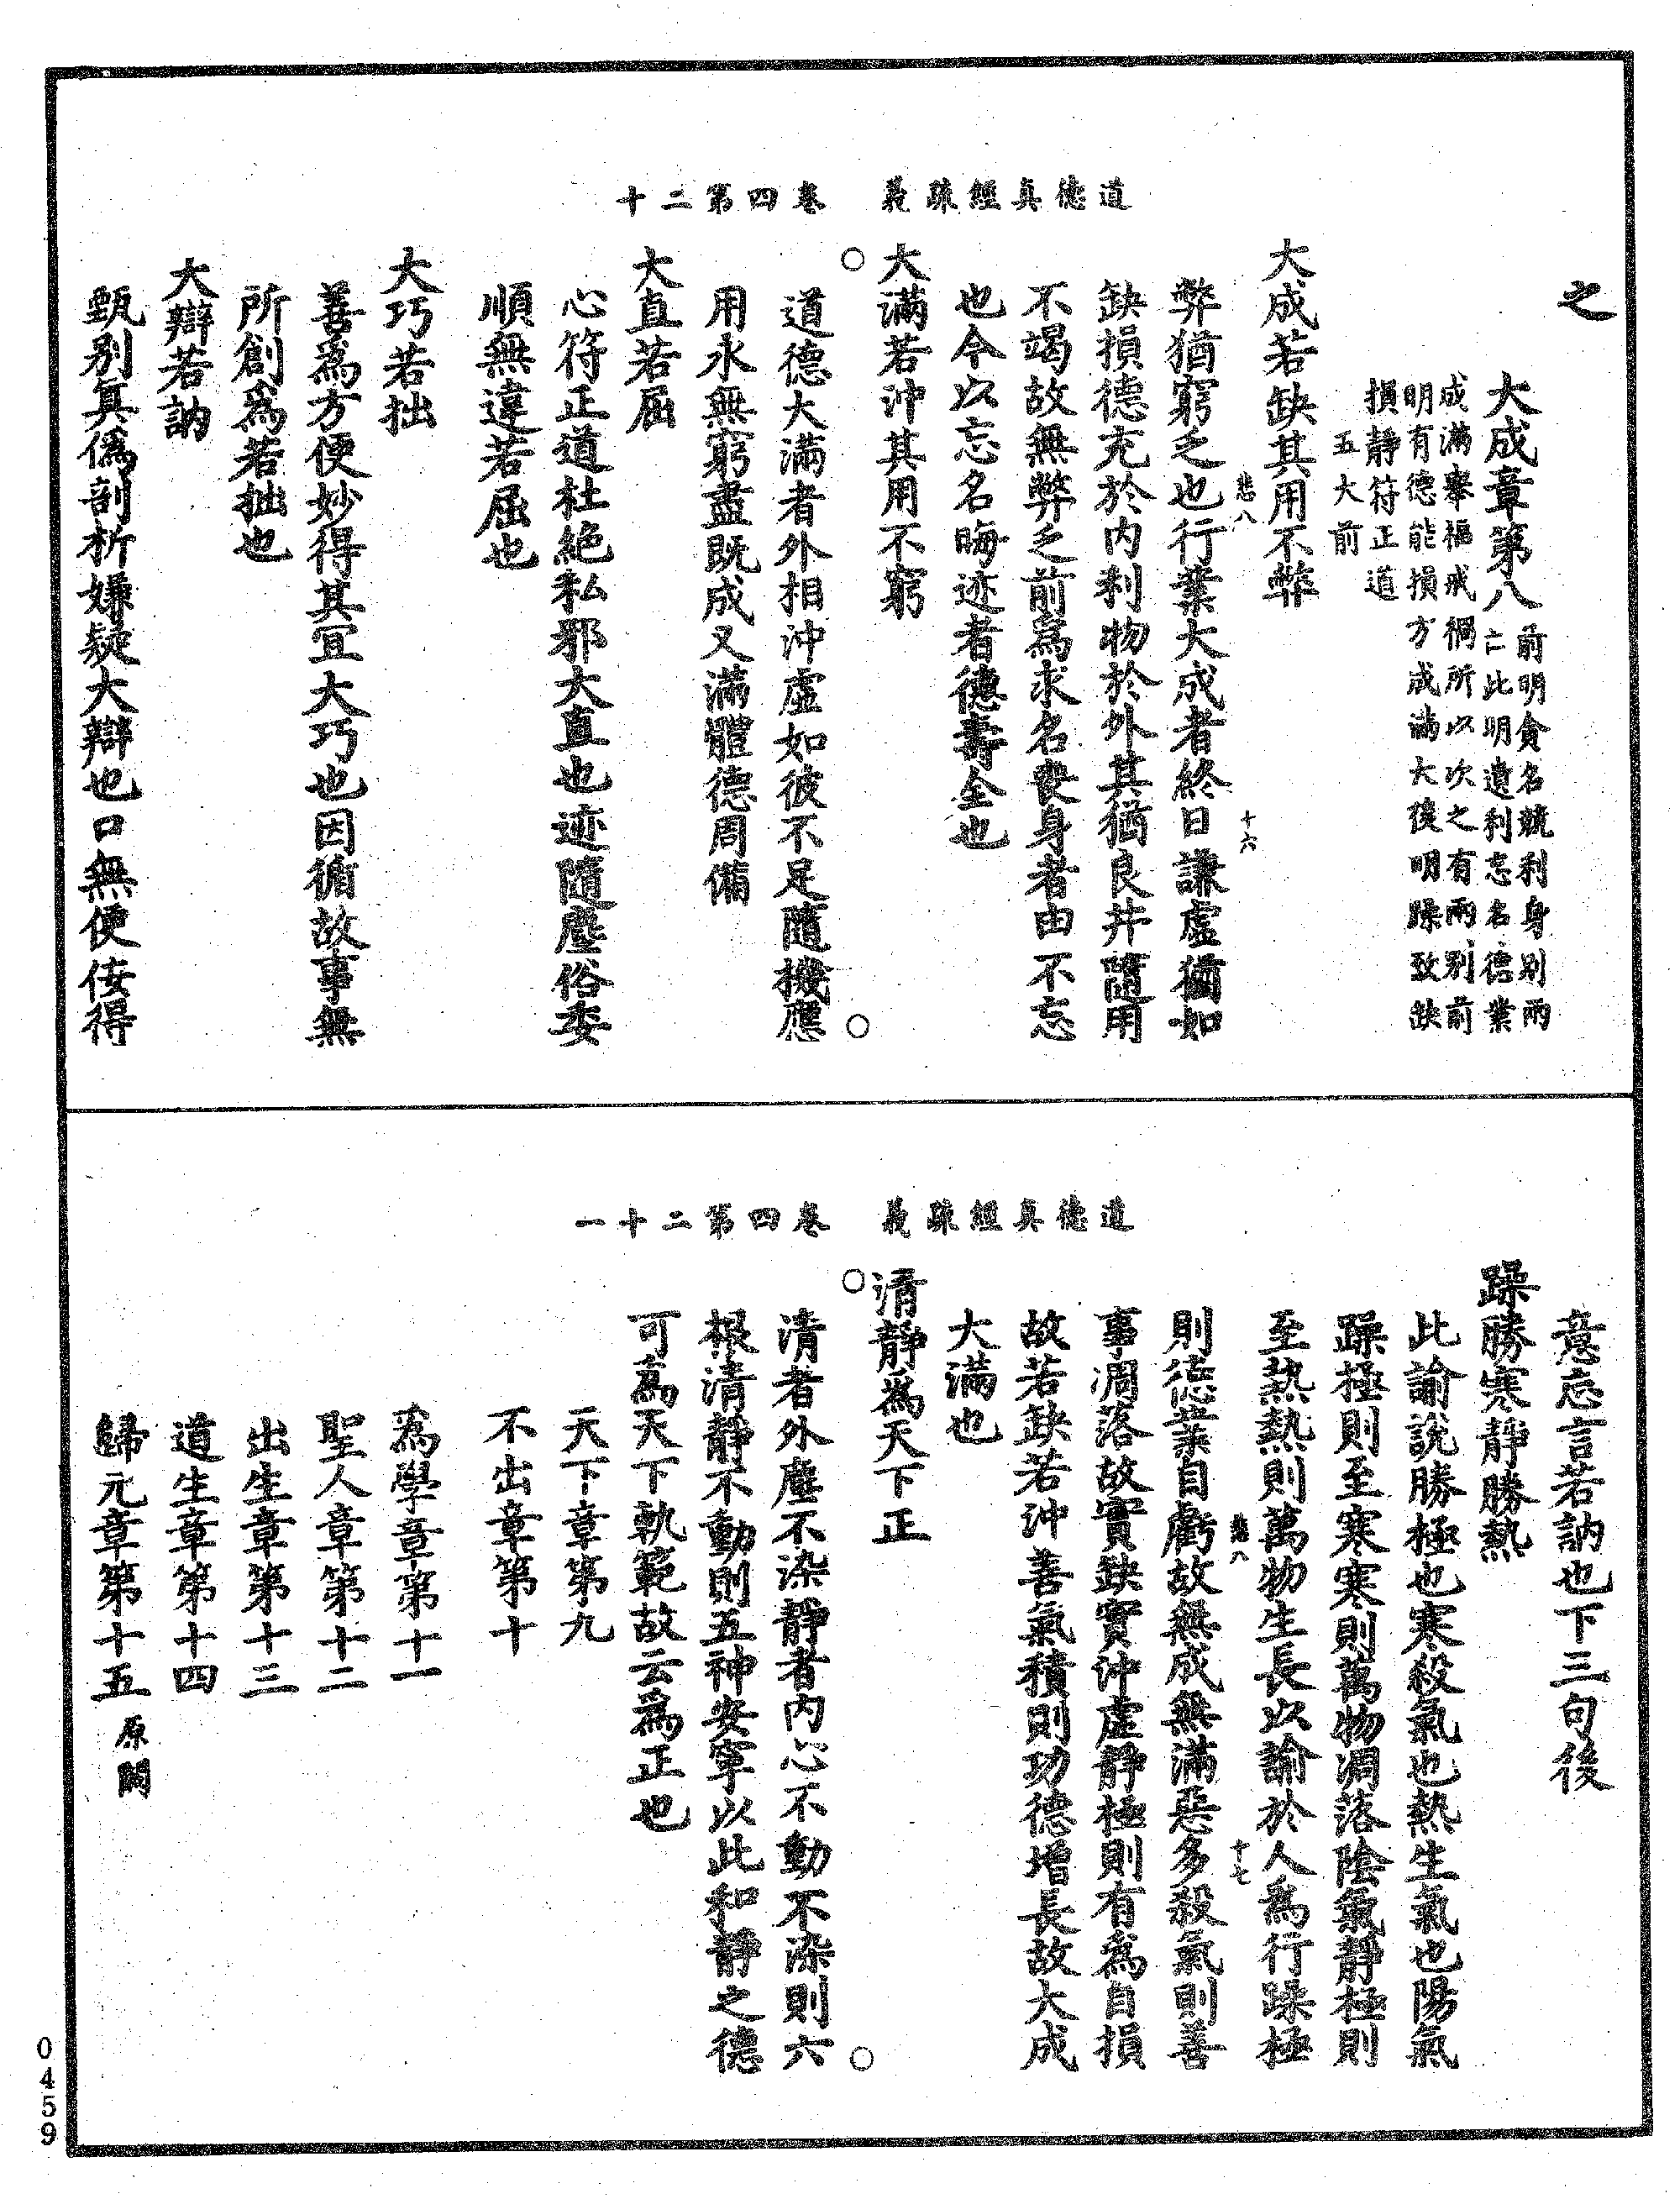 道德真經疏義　卷四第二十
之
大成章第八
前明貪名競利身別兩
亡此明遺利忘名德業
成滿舉福戒禍所以次之有兩別前
明有德能損方成滿大後明躁致缺
損靜符正道
五大前
大成若缺其用不弊
悲八　十六
弊猶窮乏也行業大成者終日謙虛猶如
缺損德充於内利物於外其猶良井隨用
不竭故無弊乏前爲求名喪身者由不忘
也今以忘名晦迹者德壽全也
大滿若沖其用不窮
道德大滿者外相沖虛如彼不足隨機應
用永無窮盡既成又滿體德周備
大直若屈
心符正道杜絕私邪大直也迹隨塵俗委
順無違若屈也
大巧若拙
善爲方便妙得其宜大巧也因循故事無
所創爲若拙也
大辯若訥
甄別真僞剖析嫌疑大辯也口無便佞得
道德真經疏義　卷四第二十一
意忘言若訥也下三句後
躁勝寒靜勝熱
此諭說勝極也寒殺氣也熱生氣也陽氣
躁極則至寒寒則萬物凋落陰氣靜極則
至熱熱則萬物生長以諭於人爲行躁極
悲八　十七
則德業自虧故無成無滿惡多殺氣則善
事凋落故實缺實沖虛靜極則有爲自損
故若缺若沖善氣積則功德增長故大成
大滿也
清靜爲天下正
清者外塵不染靜者内心不動不染則六
根清靜不動則五神安寧以此和靜之德
可爲天下軌範故云爲正也
天下章第九
不出章第十
爲學章第十一
聖人章第十二
出生章第十三
道生章第十四
歸元章第十五　原闕
0459